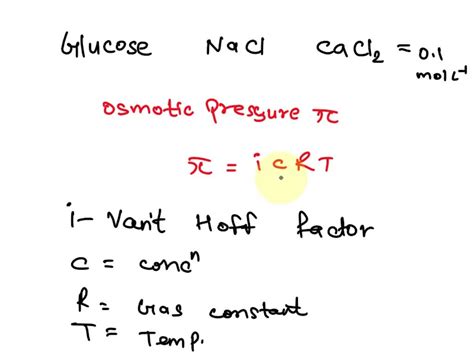 Glucose NaCl CaCl₂ = 0.1 mol L⁻¹
Osmotic Pressure π
π = i C R T
i - Van't Hoff factor
C = concⁿ
R = Gas constant
T = Temp.